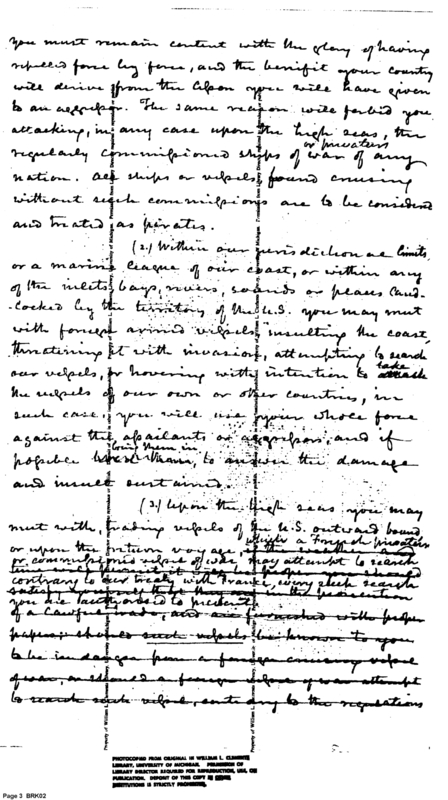 you must remain content with the glory of having
repelled force by force, and the benefit your country
will derive from the lesson you will have given
to an aggressor. The same reason will forbid you
attacking, in any case upon the high seas, the
or privateers
regularly commissioned ships of war of any
nation. All ships or vessels, found cruising
without such commissions are to be considered
and treated as pirates.
(2.) Within our jurisdictional limits,
or a marine league of our coast, or within any
of the inlets, bays, rivers, sounds or places land-
-locked by the territory of the U.S. you may meet
with foreign armed vessels, insulting the coast,
threatening it with invasion, attempting to search
take
our vessels, or hovering with intention to attack
the vessels of our own or other countries, in
such case, you will use your whole force
against the assailants or aggressors, and if
bring them in
possible, to answer the damage
and insult sustained.
(3.) Upon the high seas you may
meet with, trading vessels of the U.S. outward bound
which a French privateer
or upon the return voyage,
or commissioned vessel of war, may attempt to search
contrary to our treaty with France, every such search
you are authorised to prevent
of a lawful trade, and are furnished with proper
papers: should such vessels be known to you
to be in danger from a foreign cruising vessel
of war, or should a foreign vessel of war attempt
to search such vessel, contrary to the regulations
Property of William
Property of William
PHOTOCOPIED FROM ORIGINAL IN WILLIAM L. CLEMENTS
LIBRARY, UNIVERSITY OF MICHIGAN. PERMISSION OF
LIBRARY DIRECTOR REQUIRED FOR REPRODUCTION, USE, OR
PUBLICATION. DEPOSIT OF THIS COPY IN OTHER
INSTITUTIONS IS STRICTLY PROHIBITED.
Page 3 BRK02